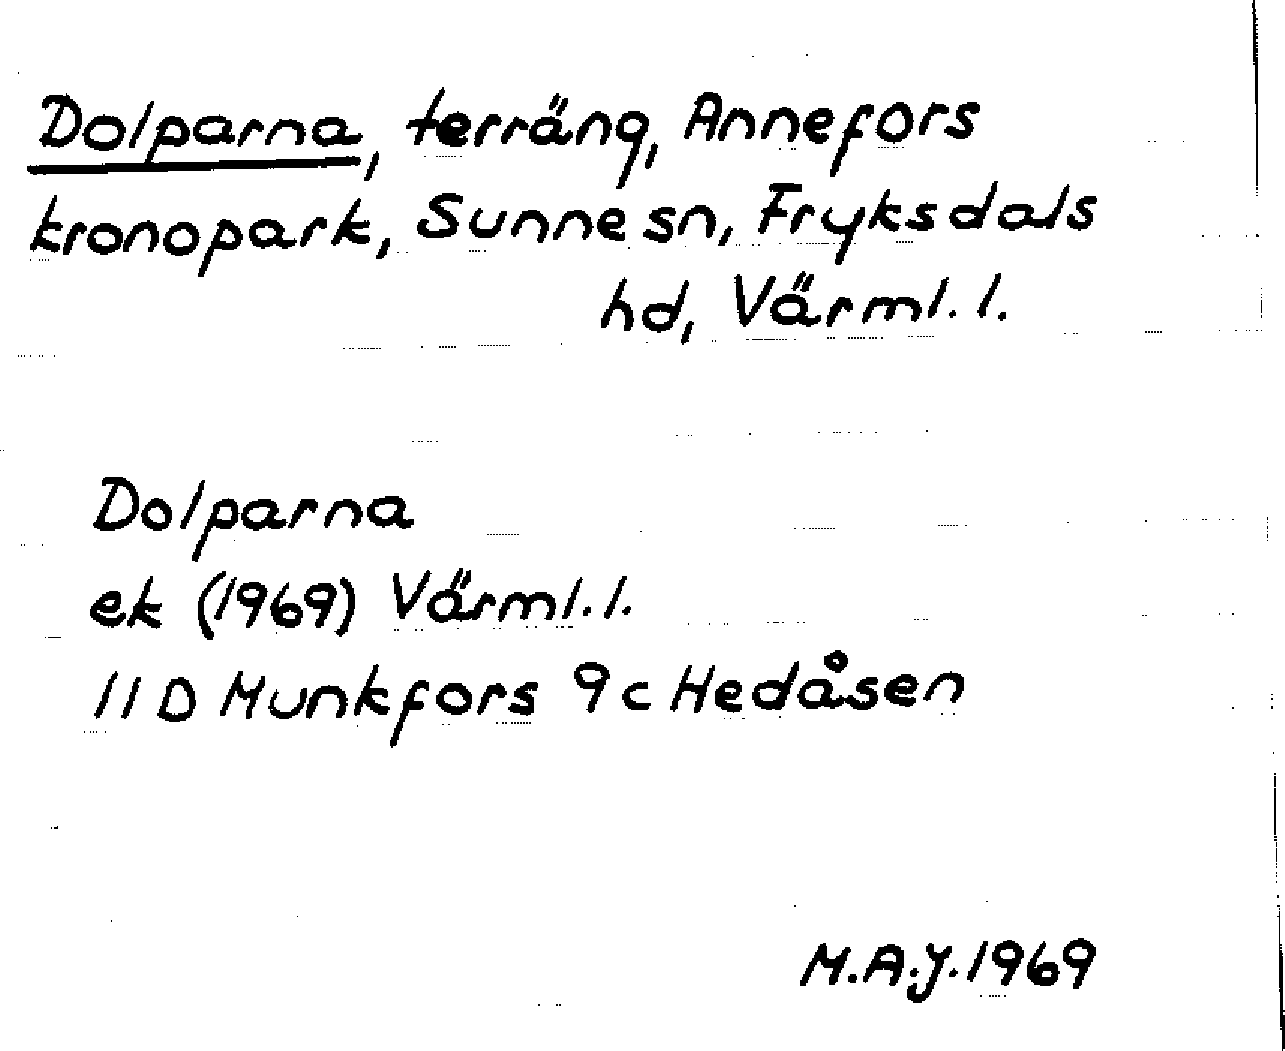 Dolparna, terräng, Annefors
kronopark, Sunne sn, Fryksdals
hd, Värml. l.
Dolparna
ek (1969) Värml. l.
11 D Munkfors 9c Hedåsen
M.A.J. 1969